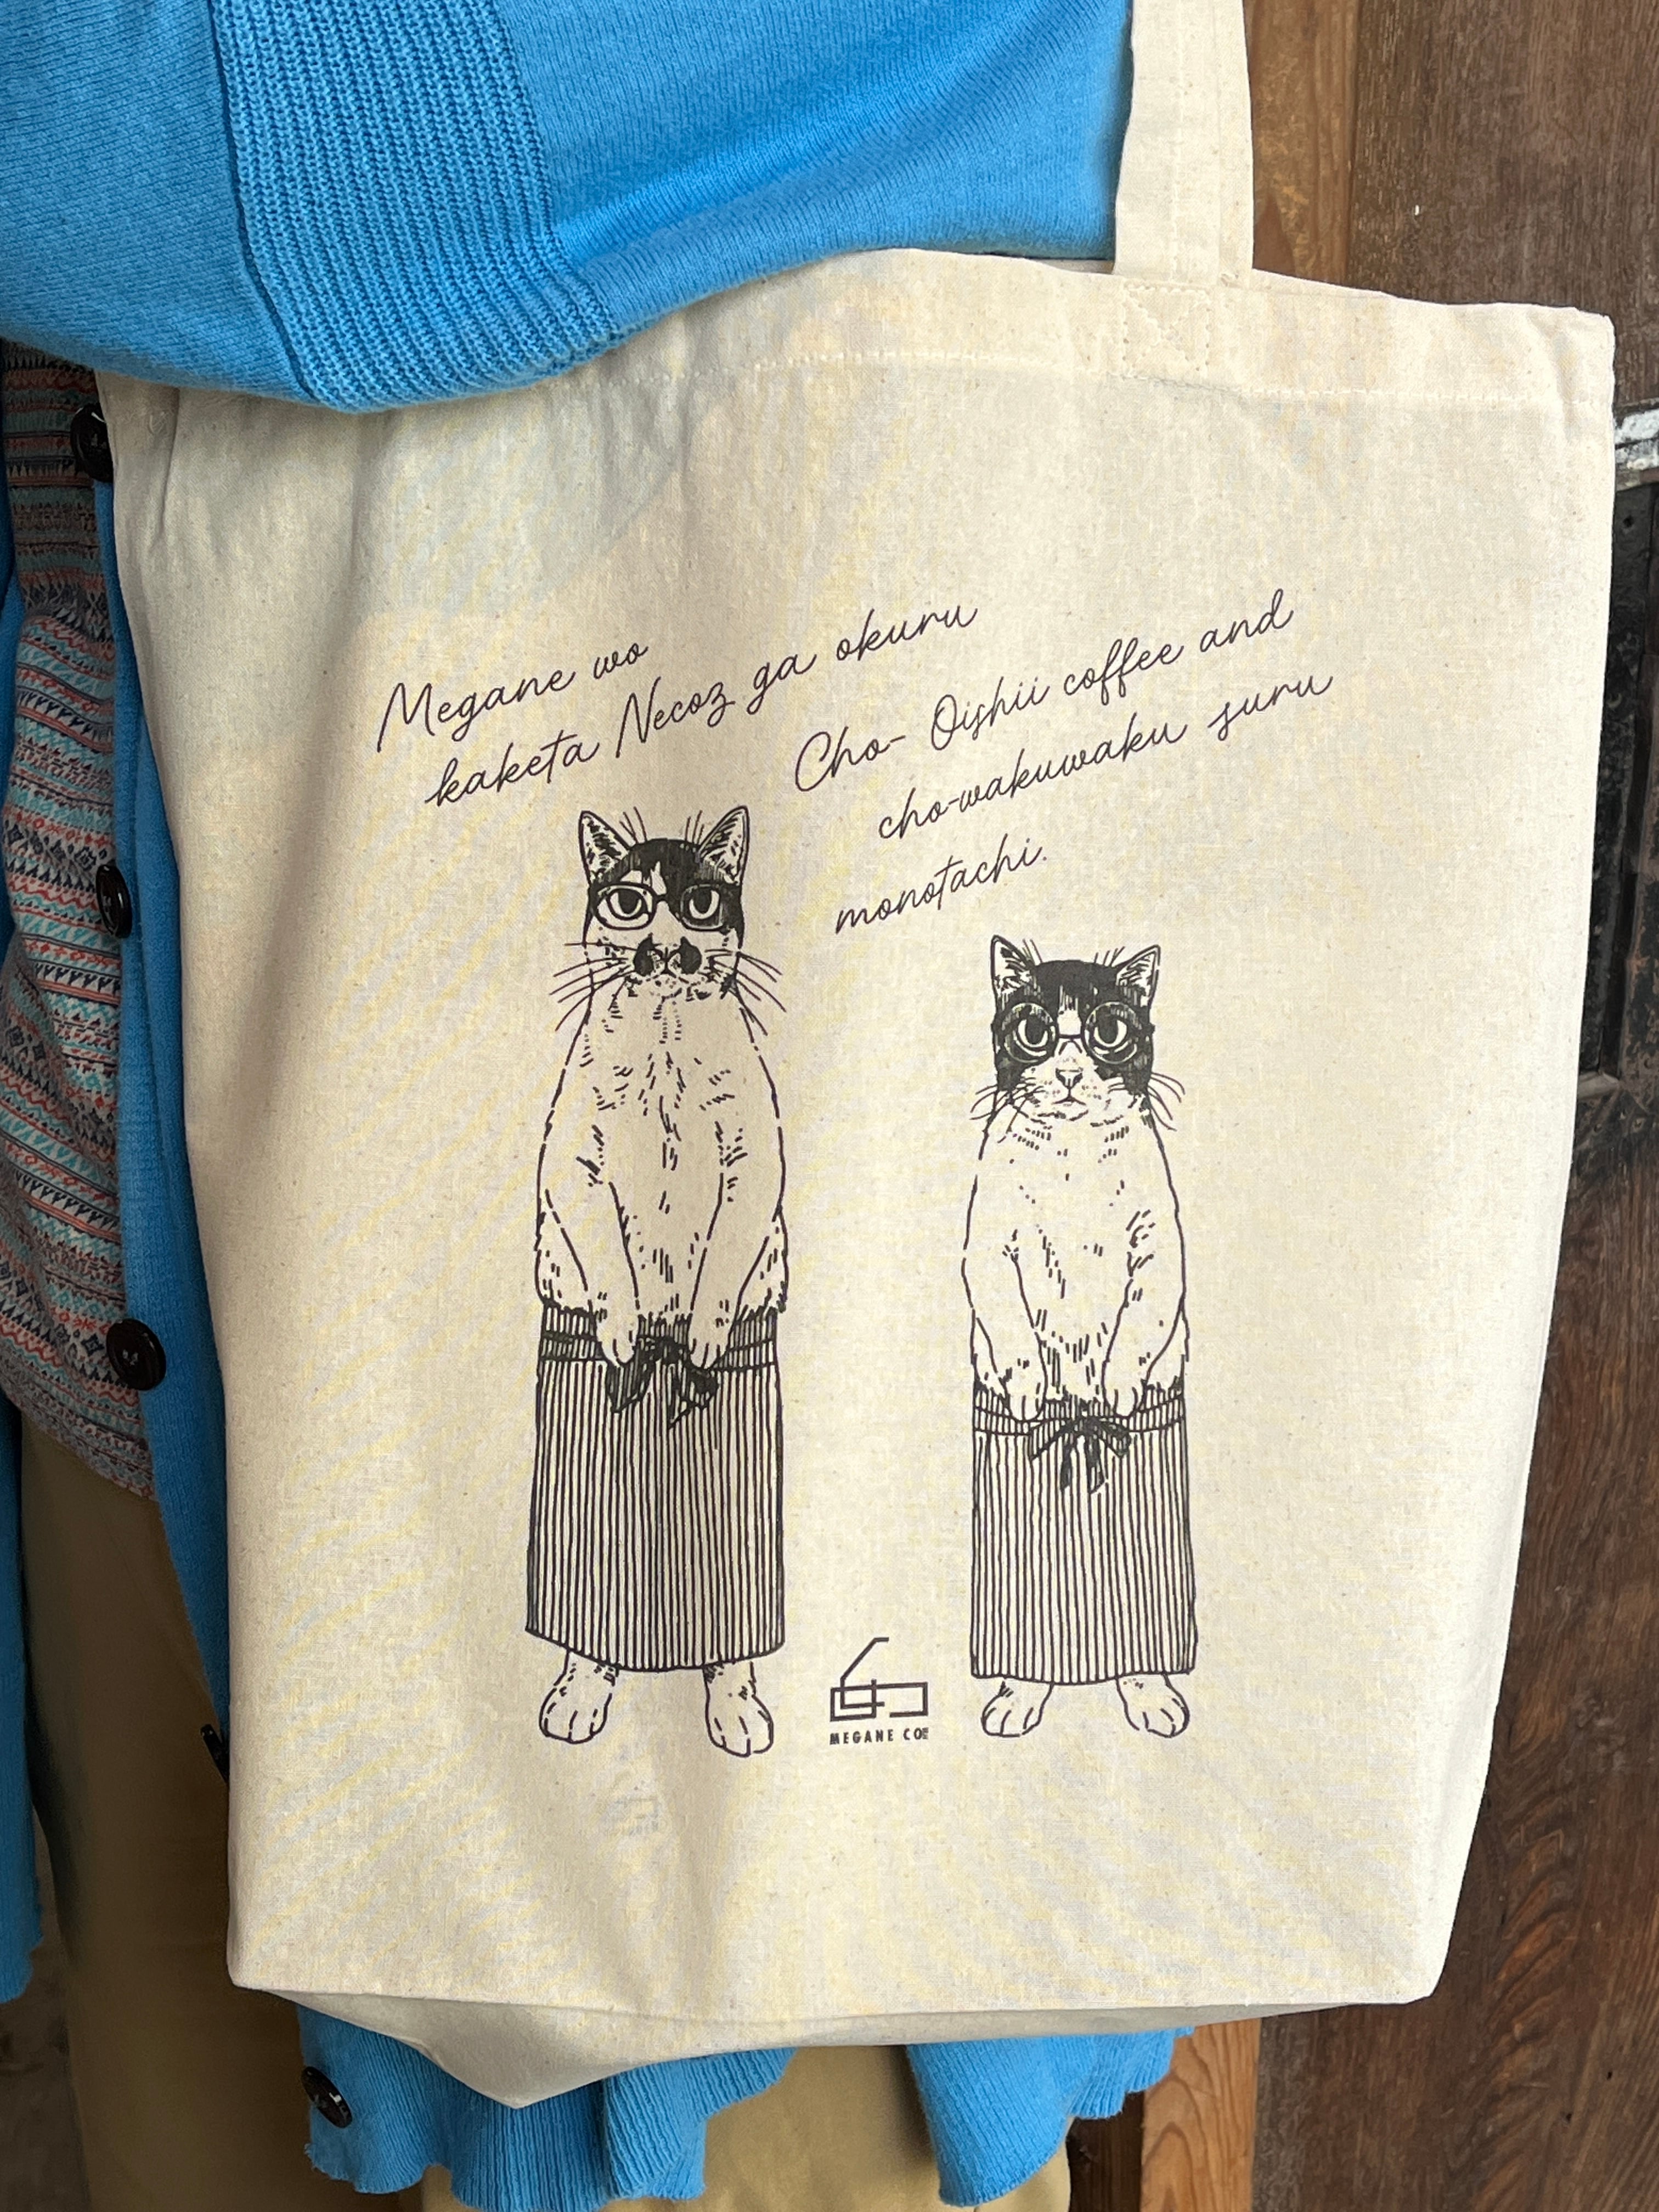 Megane wo
kaketa Necoz ga okuru
Cho- Oishii coffee and
cho-wakuwaku suru
monotachi.
MEGANE COFFEE